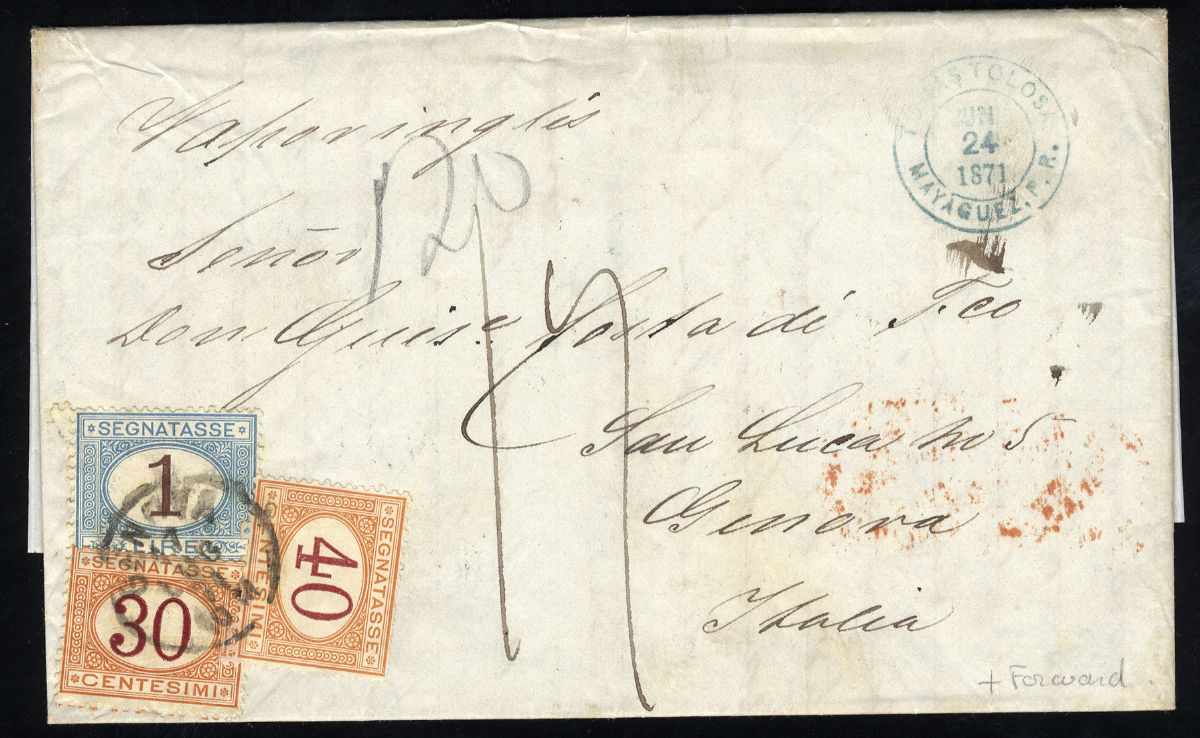 Vapor inglis
TOMAS TOLOSA
JUN
24
1871
MAYAGUEZ, P. R.
120
Señor
Don Guise. Costa di F.co
San Luca no 5
Genova
Italia
SEGNATASSE
1
LIRE
SEGNATASSE
30
CENTESIMI
SEGNATASSE
40
CENTESIMI
+ Forward